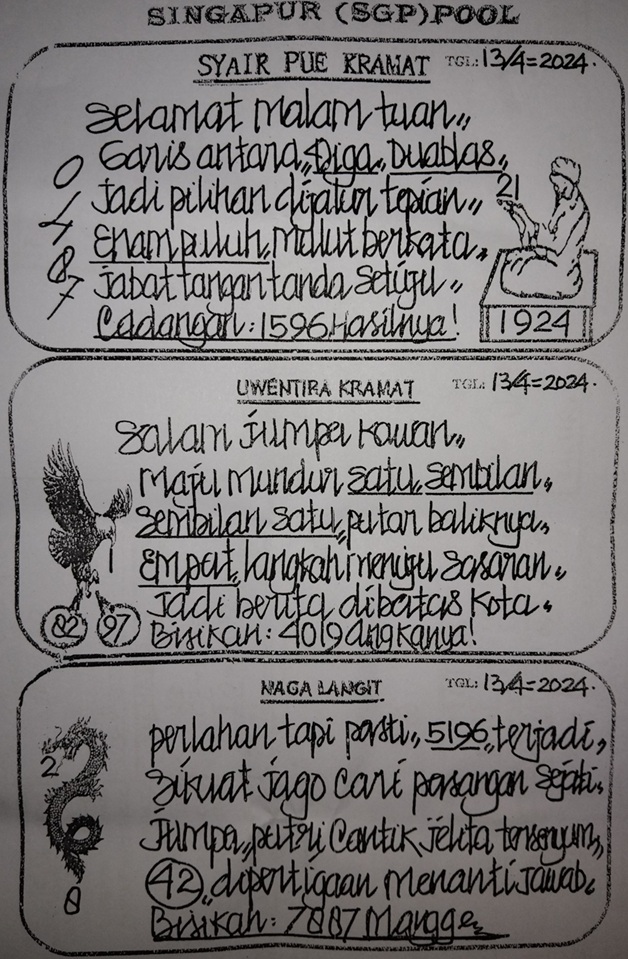 SINGAPUR (SGP) POOL
SYAIR PUE KRAMAT TGL: 13/4=2024.
Selamat Malam tuan,,
Garis antara,, Diga,, Duablas,,
Jadi pilihan dijalur tepian,, 21
Enampuluh, Mulut berkata.
Jabat tangan tanda Setuju,,
Cadangan: 1596 Hasilnya!
0
1
4
8
7
1924
UWENTIRA KRAMAT TGL: 13/4=2024.
Salam Jumpa kawan,,
Maju Mundur Satu, Sembilan,
Sembilan Satu,, putar baliknya,
Empat, langkah menuju Sasaran,
Jadi berita dibatas kota.
Bisikan: 4019 angkanya!
82 97
NAGA LANGIT TGL: 13/4=2024.
perlahan tapi pasti,, 5196,, terjadi,
Sikuat Jago cari pasangan Sejati.
Jumpa,, putri Cantik jelita tersenyum,
42,, dipertigaan menanti Jawab.
Bisikan: 7887 Mangge
2
8